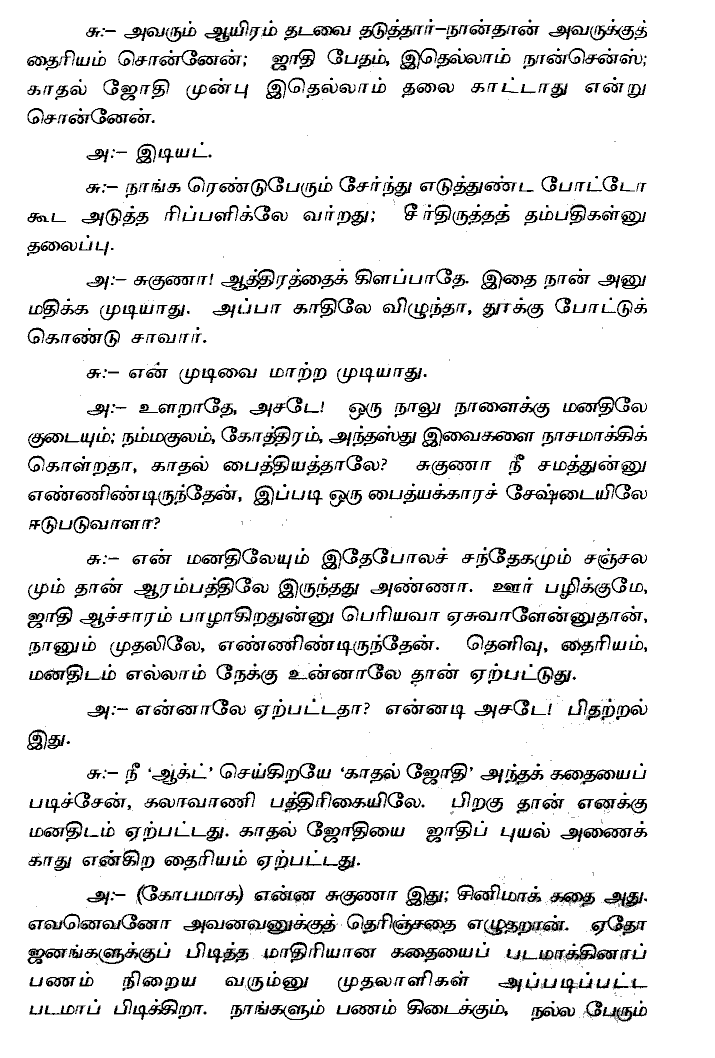 சு:— அவரும் ஆயிரம் தடவை தடுத்தார்—நான்தான் அவருக்குத்
தைரியம் சொன்னேன்; ஜாதி பேதம், இதெல்லாம் நான்சென்ஸ்;
காதல் ஜோதி முன்பு இதெல்லாம் தலை காட்டாது என்று
சொன்னேன்.
அ:— இடியட்.
சு:— நாங்க ரெண்டுபேரும் சேர்ந்து எடுத்துண்ட போட்டோ
கூட அடுத்த ரிப்பளிக்லே வர்றது; சீர்திருத்தத் தம்பதிகள்னு
தலைப்பு.
அ:— சுகுணா! ஆத்திரத்தைக் கிளப்பாதே. இதை நான் அனு
மதிக்க முடியாது. அப்பா காதிலே விழுந்தா, தூக்கு போட்டுக்
கொண்டு சாவார்.
சு:— என் முடிவை மாற்ற முடியாது.
அ:— உளறாதே, அசடே! ஒரு நாலு நாளைக்கு மனதிலே
குடையும்; நம்மகுலம், கோத்திரம், அந்தஸ்து இவைகளை நாசமாக்கிக்
கொள்றதா, காதல் பைத்தியத்தாலே? சுகுணா நீ சமத்துன்னு
எண்ணிண்டிருந்தேன், இப்படி ஒரு பைத்யக்காரச் சேஷ்டையிலே
ஈடுபடுவாளா?
சு:— என் மனதிலேயும் இதேபோலச் சந்தேகமும் சஞ்சல
மும் தான் ஆரம்பத்திலே இருந்தது அண்ணா. ஊர் பழிக்குமே,
ஜாதி ஆச்சாரம் பாழாகிறதுன்னு பெரியவா ஏசுவாளேன்னுதான்,
நானும் முதலிலே, எண்ணிண்டிருந்தேன். தெளிவு, தைரியம்,
மனதிடம் எல்லாம் நேக்கு உன்னாலே தான் ஏற்பட்டுது.
அ:— என்னாலே ஏற்பட்டதா? என்னடி அசடே! பிதற்றல்
இது.
சு:— நீ ‘ஆக்ட்’ செய்கிறயே ‘காதல் ஜோதி’ அந்தக் கதையைப்
படிச்சேன், கலாவாணி பத்திரிகையிலே. பிறகு தான் எனக்கு
மனதிடம் ஏற்பட்டது. காதல் ஜோதியை ஜாதிப் புயல் அணைக்
காது என்கிற தைரியம் ஏற்பட்டது.
அ:— (கோபமாக) என்ன சுகுணா இது; சினிமாக் கதை அது.
எவனெவனோ அவனவனுக்குத் தெரிஞ்சதை எழுதறான். ஏதோ
ஜனங்களுக்குப் பிடித்த மாதிரியான கதையைப் படமாக்கினாப்
பணம் நிறைய வரும்னு முதலாளிகள் அப்படிப்பட்ட
படமாப் பிடிக்கிறா. நாங்களும் பணம் கிடைக்கும், நல்ல பேரும்